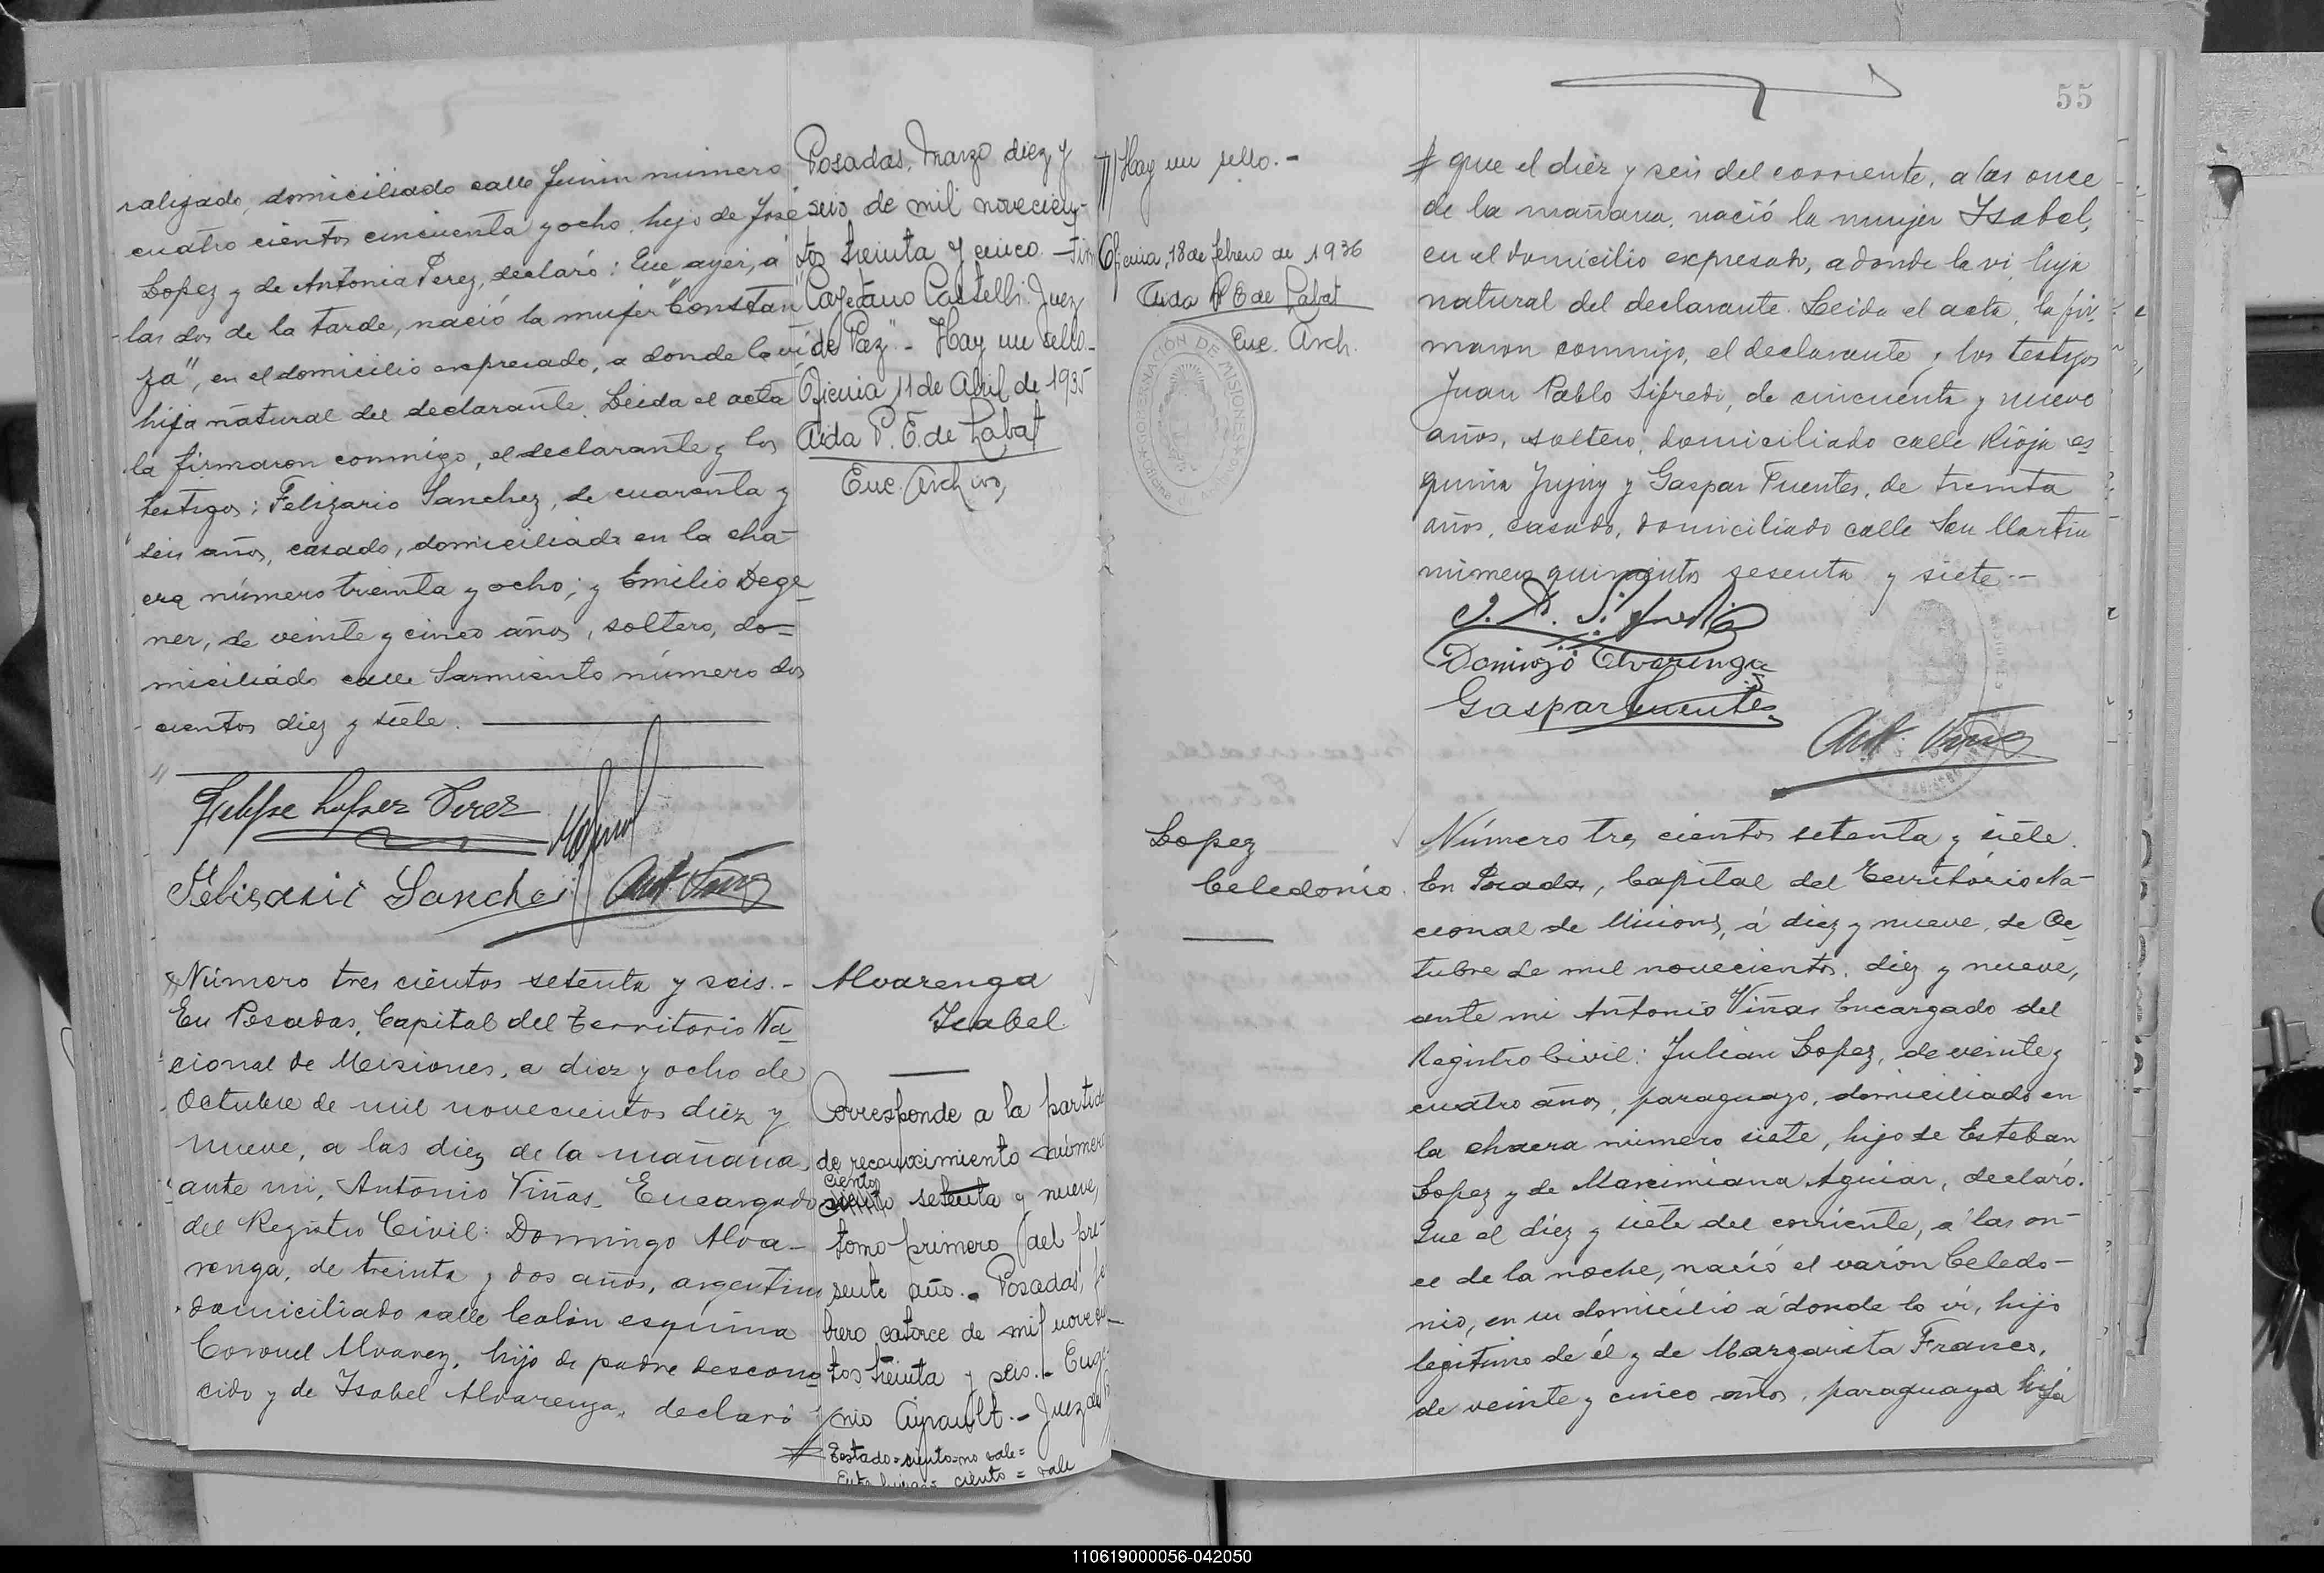 ralizado, domiciliado calle Junin número
cuatro cientos cincuenta y ocho, hijo de José
Lopez y de Antonia Perez, declaró: Que ayer, á
las dos de la tarde, nació la mujer "Constan
za", en el domicilio expresado, a donde la vi
hija natural del declarante. Leida el acta
la firmaron conmigo, el declarante y los
testigos: Felizario Sanchez, de cuarenta y
seis años, casado, domiciliado en la cha-
cra número treinta y ocho; y Emilio Dege
ner, de veinte y cinco años, soltero, do=
miciliado calle Sarmiento número dos
cientos diez y siete.
Felipe Lopez Perez
Felisario Sanchez
Ant. Viñas
Número tres cientos setenta y seis.-
En Posadas, Capital del Territorio Na
cional de Misiones, a diez y ocho de
Octubre de mil novecientos diez y
nueve, a las diez de la mañana,
ante mi, Antonio Viñas, Encargado
del Registro Civil: Domingo Alva-
renga, de treinta y dos años, argentino
domiciliado calle Colón esquina
Coronel Alvarez, hijo de padre descono
cido y de Isabel Alvarenga, declaró:
Posadas, Marzo diez y
seis de mil novecien-
tos treinta y cinco.- Fir
Cayetano Castelli. Juez
de Paz".- Hay un sello.-
Oficina, 11 de Abril de 1935
Aida P. E. de Labat
Enc. Archivo,
Alvarenga
Isabel
Corresponde a la partida
de reconocimiento número
ciento
setenta y nueve,
tomo primero del pre-
sente año.- Posadas, fe
brero catorce de mil novecien-
tos treinta y seis.- Euge-
nio Ayrault.- Juez de
Testado=ciento=no vale=
Entre lineas= ciento = vale
Hay un sello.-
Oficina, 18 de febrero de 1936
Aida P E de Labat
Enc. Arch.
GOBERNACIÓN DE MISIONES
Lopez
Celedonio
55
# que el diez y seis del corriente, a las once
de la mañana, nació la mujer Isabel,
en el domicilio expresado, a donde la vi, hija
natural del declarante. Leida el acta, la fir-
maron conmigo, el declarante y los testigos
Juan Pablo Sifredi, de cincuenta y nueve
años, soltero, domiciliado calle Rioja es
quina Jujuy y Gaspar Fuentes, de treinta
años, casado, domiciliado calle San Martin
número quinientos sesenta y siete.-
J. P. Sifredi
Domingo Alvarenga
Gaspar Fuentes
Ant. Viñas
Número tres cientos setenta y siete.
En Posadas, Capital del Territorio Na-
cional de Misiones, á diez y nueve de Oc
tubre de mil novecientos diez y nueve,
ante mi Antonio Viñas Encargado del
Registro Civil: Julian Lopez, de veinte y
cuatro años, paraguayo, domiciliado en
la chacra número siete, hijo de Esteban
Lopez y de Marcimiana Aguiar, declaró.
Que el diez y siete del corriente, a las on-
ce de la noche, nació el varón Celedo-
nio, en su domicilio a donde lo vi, hijo
legitimo de él y de Margarita Franco,
de veinte y cinco años, paraguaya hija
110619000056-042050